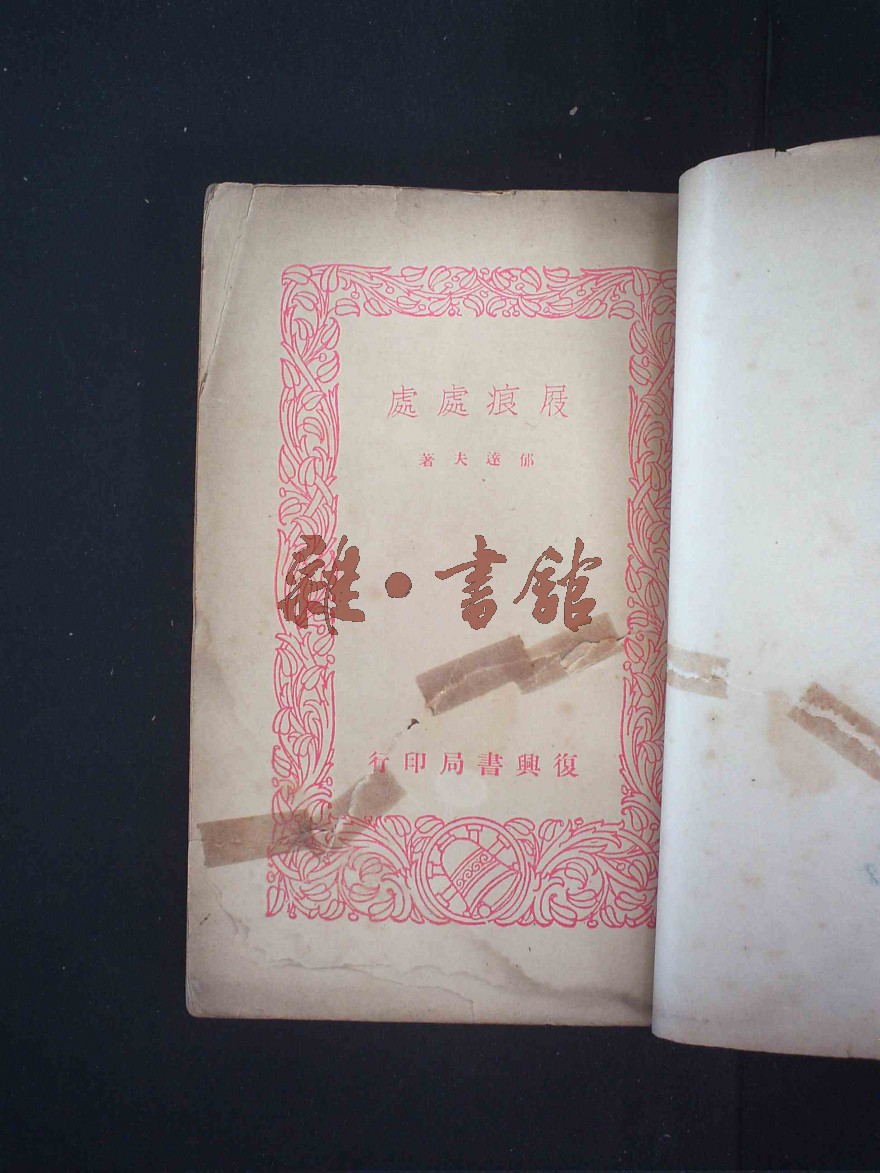 屐痕處處
郁達夫著
雜·書館
復興書局印行